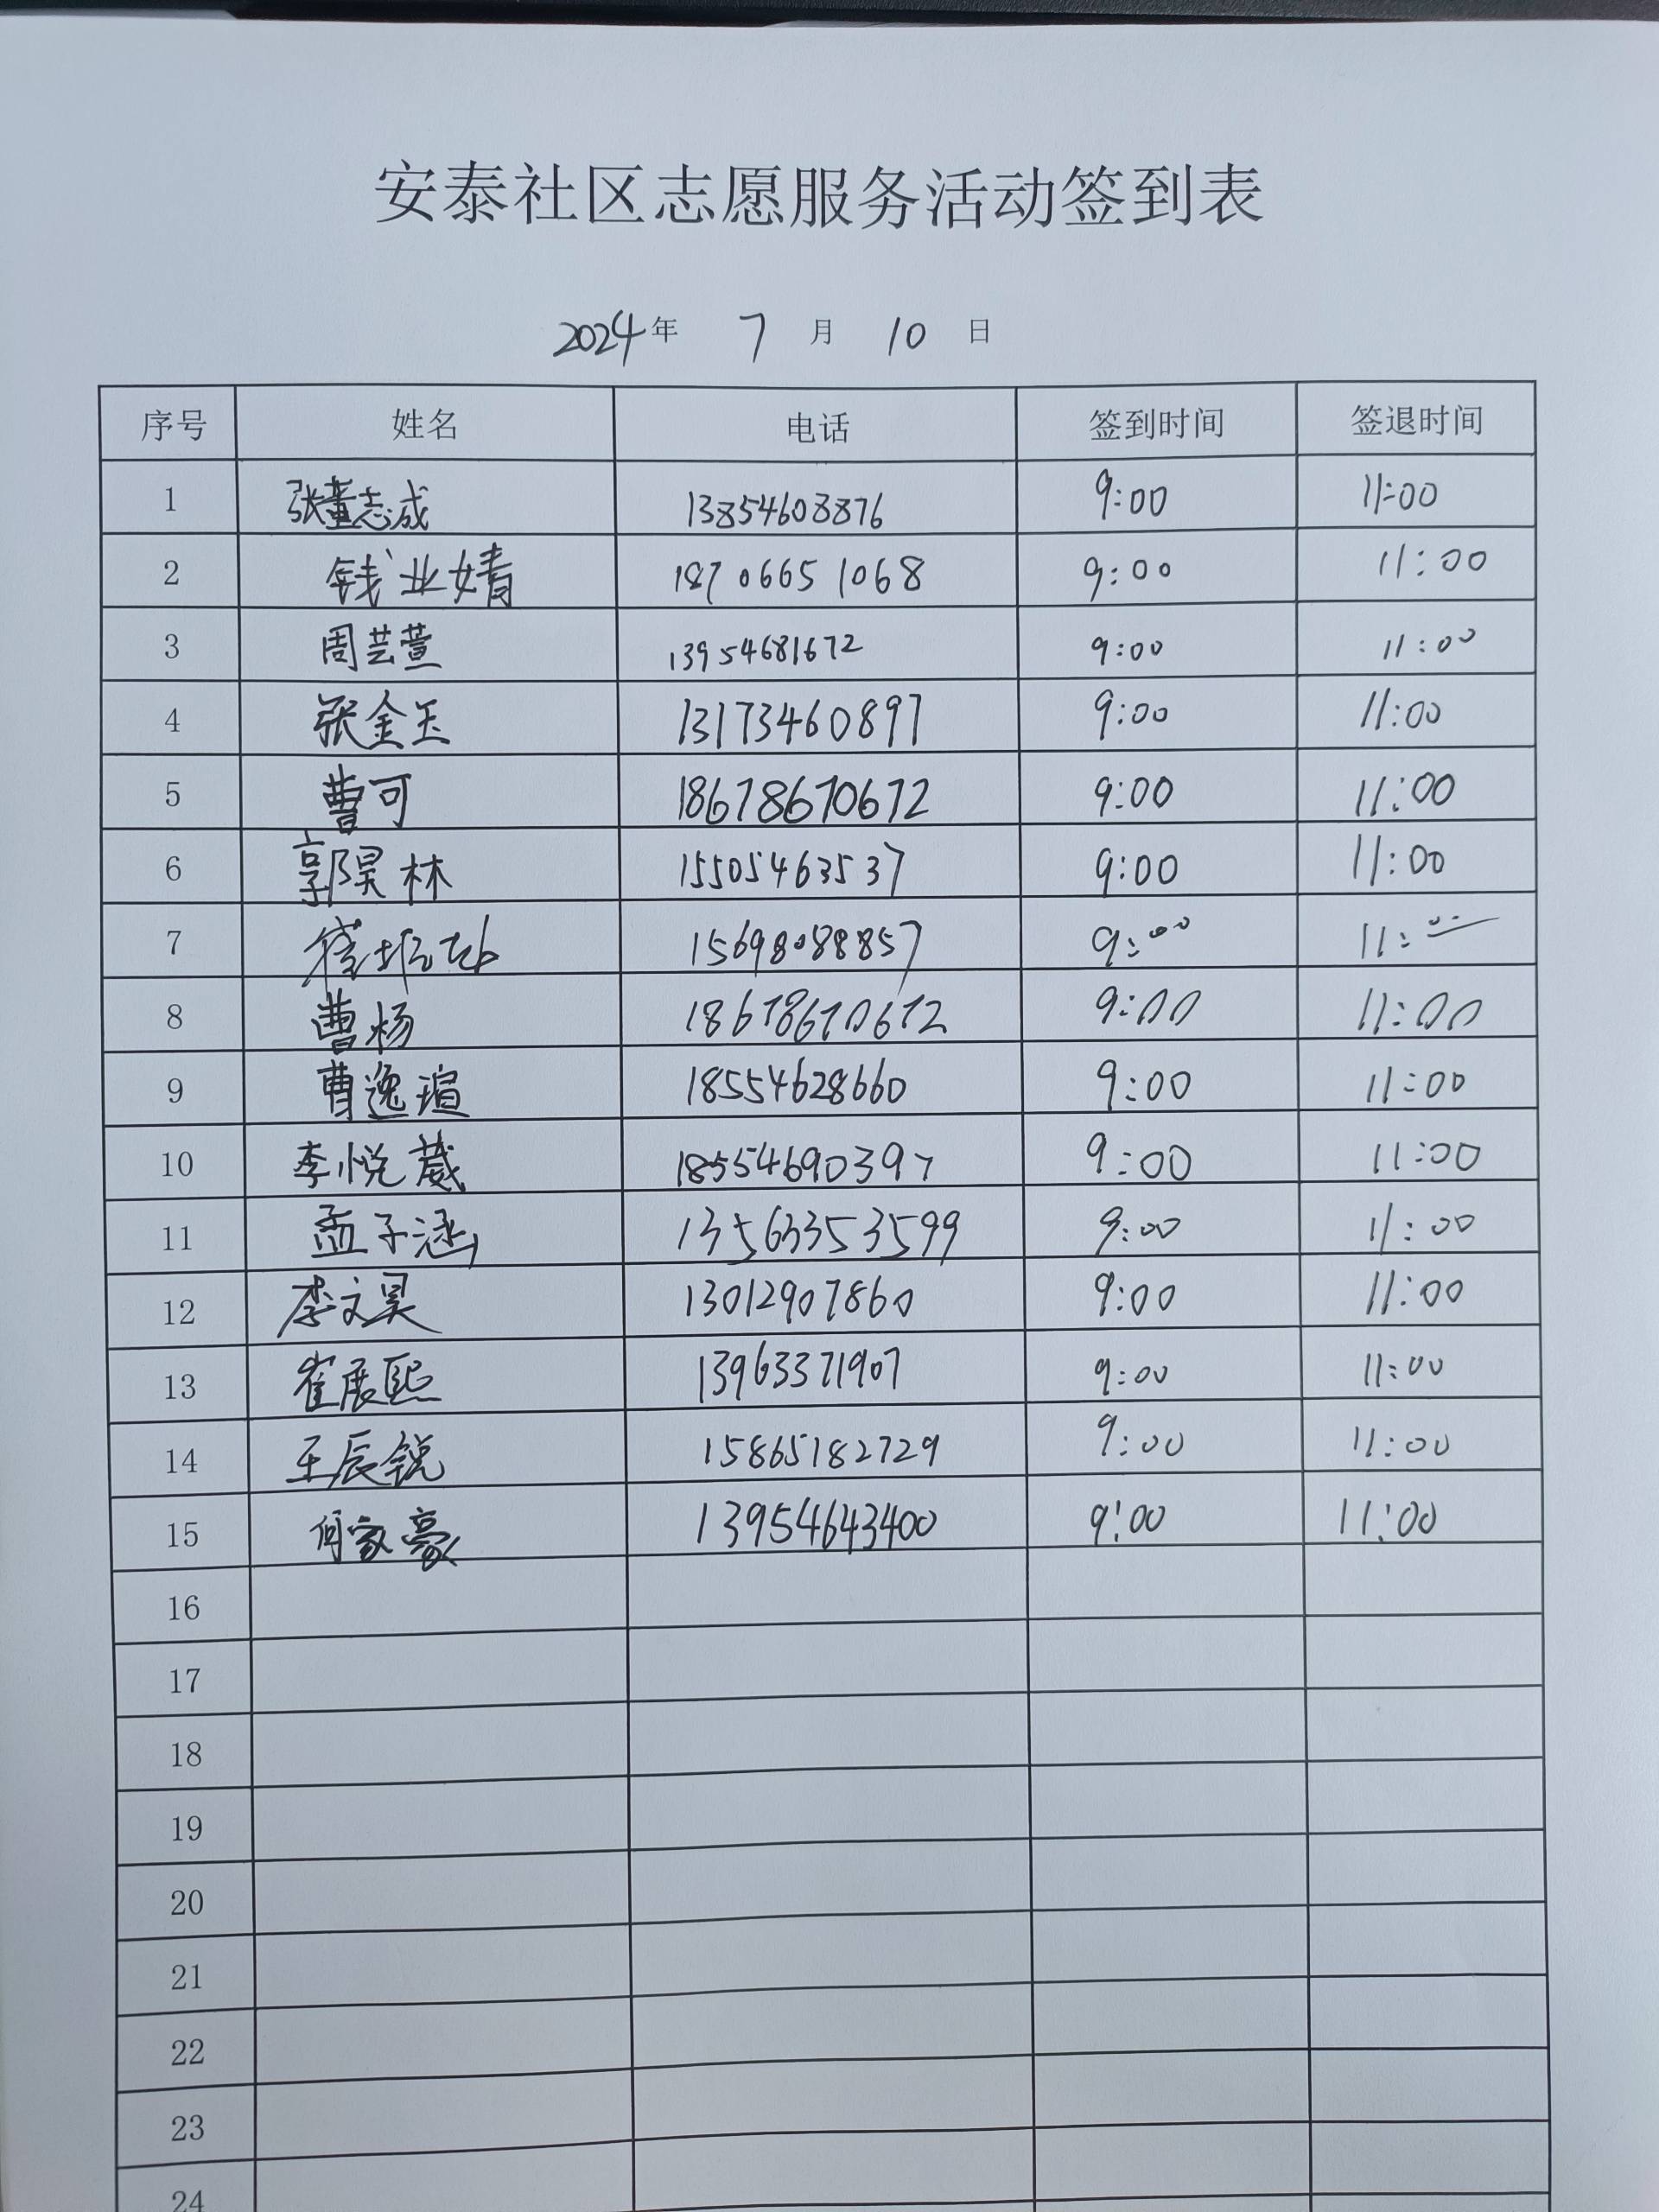 安泰社区志愿服务活动签到表
2024年 7 月 10 日
序号 姓名 电话 签到时间 签退时间
1 张董志成 13854608876 9:00 11:00
2 钱业婧 18706651068 9:00 11:00
3 周芸萱 13954681672 9:00 11:00
4 张金玉 13173460897 9:00 11:00
5 曹可 18678670672 9:00 11:00
6 郭昊林 15505463537 9:00 11:00
7 15698088857 9:00 11:00
8 曹杨 18678670672 9:00 11:00
9 曹逸瑄 18554628660 9:00 11:00
10 李悦葳 18554690397 9:00 11:00
11 孟子涵 13563353599 9:00 11:00
12 李文昊 13012907860 9:00 11:00
13 崔展熙 13963371907 9:00 11:00
14 王辰锐 15865182729 9:00 11:00
15 何家豪 13954643400 9:00 11:00
16
17
18
19
20
21
22
23
24